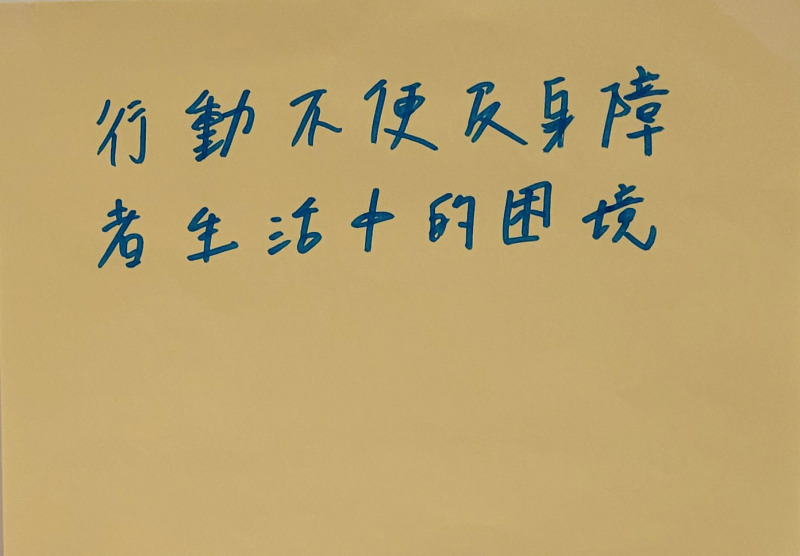 行動不便及身障
者生活中的困境